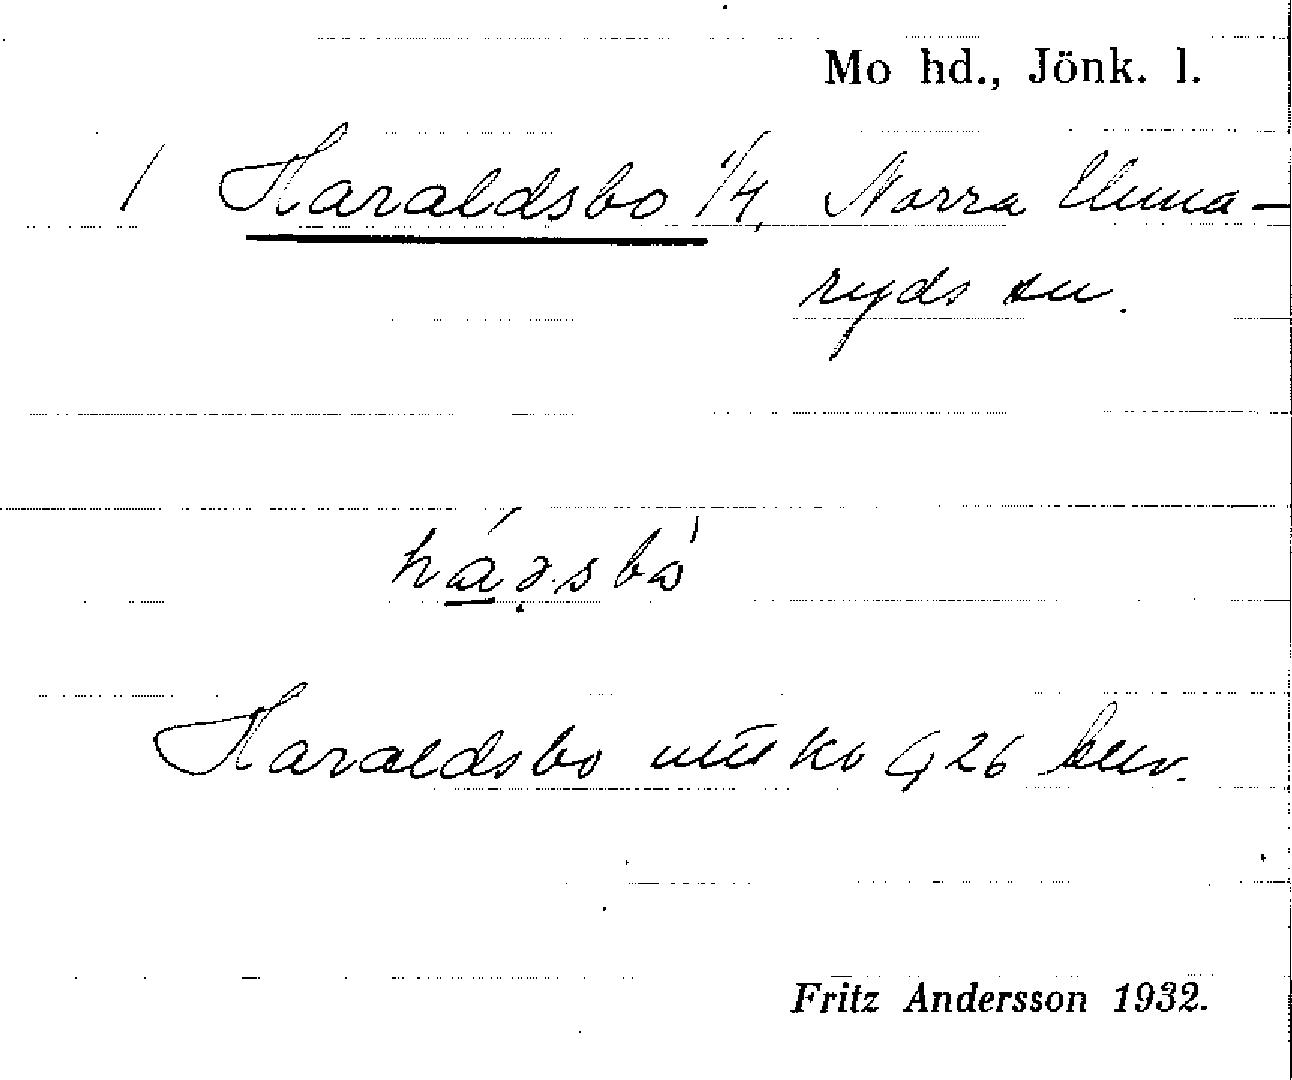 Mo hd., Jönk. l.
/ Haraldsbo 1/4, Norra Unna-
ryds sn.
Haraldsbo 26
Fritz Andersson 1932.